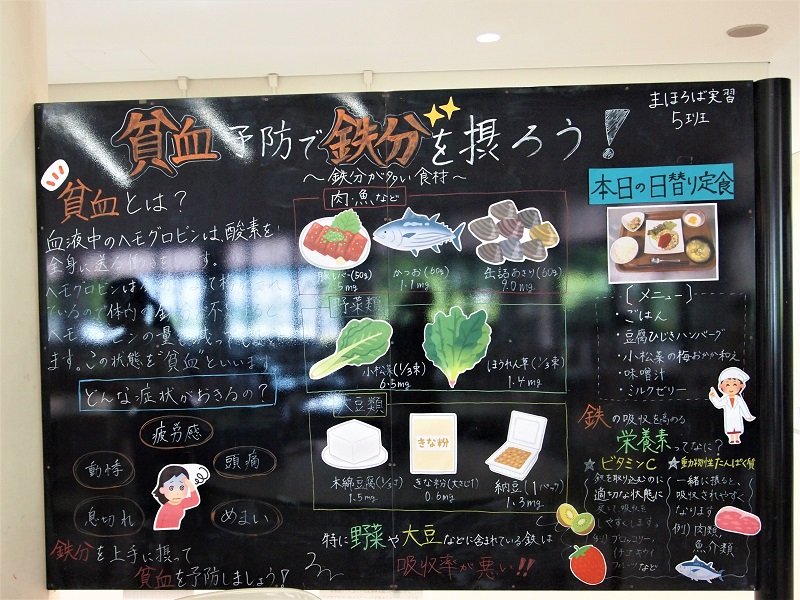 まほろば実習
5班
貧血予防で鉄分を摂ろう!
～鉄分が多い食材～
貧血とは?
血液中のヘモグロビンは、酸素を
全身に
ヘモグロビンは
ているので体内の
ヘモグロビンの量
ます。この状態を"貧血"といいます
どんな症状がおきるの?
疲労感
動悸
頭痛
息切れ
めまい
鉄分を上手に摂って
貧血を予防しましょう!
肉・魚など
豚レバー(50g)
かつお(60g)
1.1mg
缶詰あさり(60g)
9.0mg
野菜類
小松菜(1/3束)
6.5mg
ほうれん草(1/3束)
1.4mg
大豆類
木綿豆腐
1.5mg
きな粉
きな粉(大さじ1)
0.6mg
納豆(1パック)
1.3mg
特に野菜や大豆などに含まれている鉄は
吸収率が悪い!!
本日の日替り定食
[メニュー]
・ごはん
・豆腐ひじきハンバーグ
・小松菜の梅おかか和え
・味噌汁
・ミルクゼリー
鉄の吸収を高める
栄養素ってなに?
★ビタミンC
鉄を取り込むのに
適切な状態に
変えて吸収を
しやすくします。
例)ブロッコリー、
イチゴ、キウイ
フルーツなど
★動物性たんぱく質
一緒に摂ると、
吸収されやすく
なります
例)肉類、
魚介類